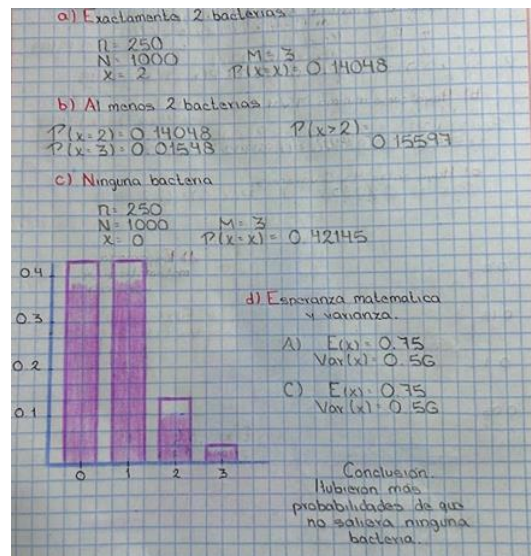 a) Exactamente 2 bacterias
n= 250
N= 1000
x= 2
M= 3
P(x=x)= 0.14048
b) Al menos 2 bacterias
P(x=2)= 0.14048
P(x=3)= 0.01548
P(x>2)=
0.15597
c) Ninguna bacteria
n= 250
N= 1000
x= 0
M= 3
P(x=x)= 0.42145
0.4
0.3
0.2
0.1
0 1 2 3
d) Esperanza matematica
y varianza.
A) E(x)= 0.75
Var(x)= 0.56
C) E(x)= 0.75
Var(x)= 0.56
Conclusión.
Hubieron más
probabilidades de que
no saliera ninguna
bacteria.